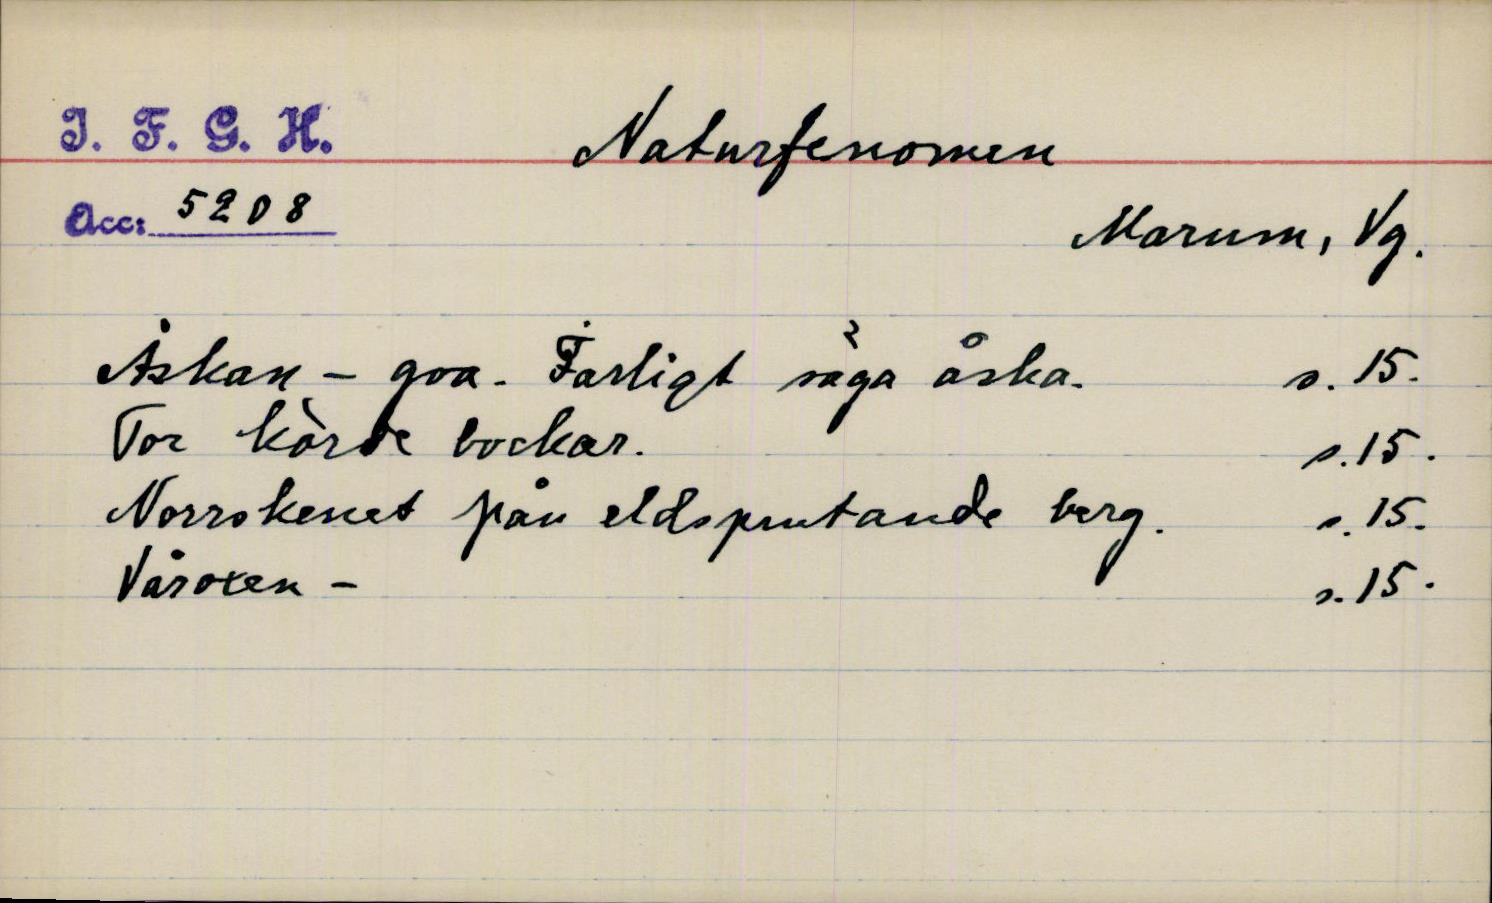 I. F. G. H.
Naturfenomen
Acc: 5208
Marum, Vg.
Åskan – goa. Farligt säga åska. s. 15.
Tor körde bockar. s. 15.
Norrskenet från eldsprutande berg. s. 15.
Våroxen – s. 15.